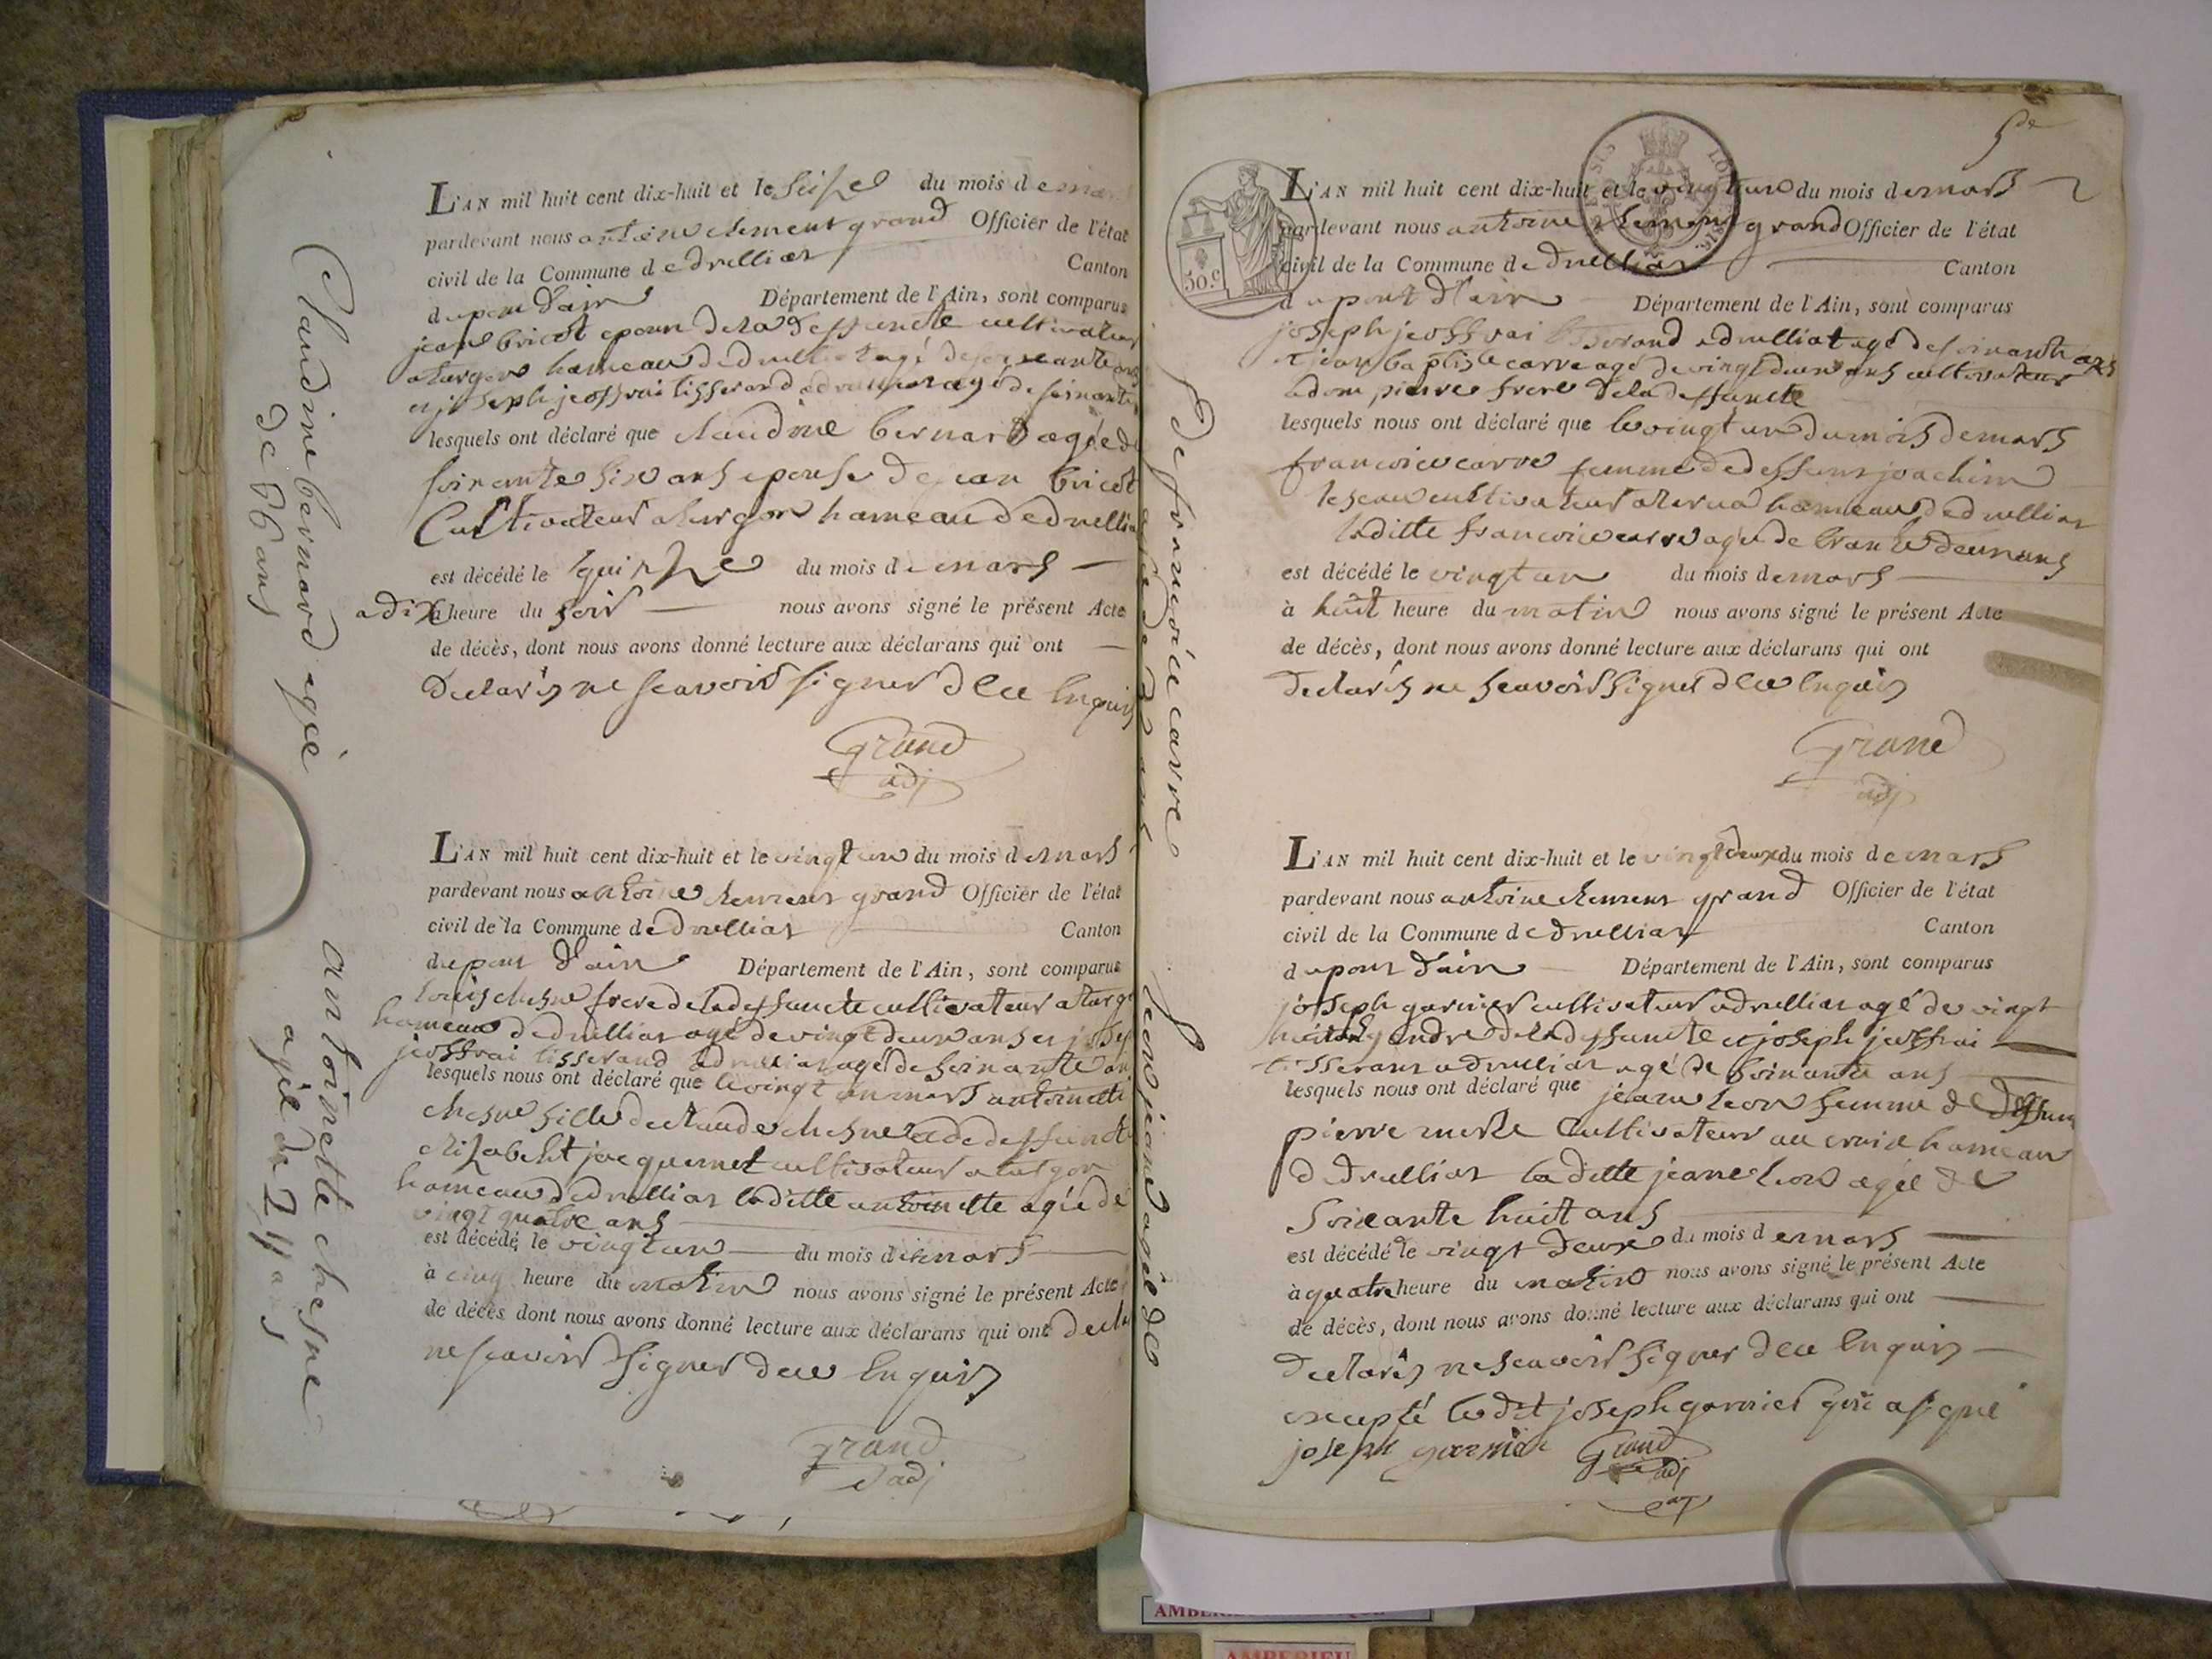 Claudine bernard agée
de 66 ans
L'AN mil huit cent dix-huit et le seize du mois de mars
pardevant nous antoine clement grand Officier de l'état
civil de la Commune de druillat Canton
du pont d'ain Département de l'Ain, sont comparus
jean bricot epoux de la deffuncte cultivateur
a turgon hameau de druillat agé de soixante ans
et joseph jeoffrai tisserand a druillat agé de soixante
lesquels ont déclaré que claudine bernard agée de
soixante six ans epouse de jean bricot
Cultivateur a turgon hameau de druillat
est décédé le quinze du mois de mars
a dix heure du soir nous avons signé le présent Acte
de décès, dont nous avons donné lecture aux déclarans qui ont
declarés ne scavoir signer de ce enquis
Grand
adj
antoinette chesne
agée de 24 ans
L'AN mil huit cent dix-huit et le vingt un du mois de mars
pardevant nous antoine clement grand Officier de l'état
civil de la Commune de druillat Canton
du pont d'ain Département de l'Ain, sont comparus
louis chesne frere de la deffuncte cultivateur a turgon
hameau de druillat agé de vingt deux ans et joseph
jeoffrai tisserand a druillat agé de soixante ans
lesquels nous ont déclaré que le vingt un mars antoinette
chesne fille de claude chesne et de deffuncte
elizabeht jacquemet cultivateur a turgon
hameau de druillat la ditte antoinette agée de
vingt quatre ans
est décédé le vingt un du mois de mars
à cinq heure du matin nous avons signé le présent Acte
de décès dont nous avons donné lecture aux déclarans qui ont decla
ne scavoir signer de ce enquis
grand
adj
5me
De francoise carre
agée de 32 ans
50.c
L'AN mil huit cent dix-huit et le vingt un du mois de mars
pardevant nous antoine clement grand Officier de l'état
civil de la Commune de druillat Canton
du pont d'ain Département de l'Ain, sont comparus
joseph jeoffrai tisserand a druillat agé de soixante ans
et jean baptiste carre agé de vingt deux ans cultivateur
a dom pierre frere de la deffuncte
lesquels nous ont déclaré que le vingt un du mois de mars
francoise carre femme de deffunt joachim
cultivateur hameau de druillat
laditte francoise carre agée de trente deux ans
est décédé le vingt un du mois de mars
à huit heure du matin nous avons signé le présent Acte
de décès, dont nous avons donné lecture aux déclarans qui ont
declarés ne scavoir signer de ce enquis
Grand
adj
jeane agée de
L'AN mil huit cent dix-huit et le vingt deux du mois de mars
pardevant nous antoine clement grand Officier de l'état
civil de la Commune de druillat Canton
du pont d'ain Département de l'Ain, sont comparus
joseph garnier cultivateur a druillat agé de vingt
huit ans gendre de la deffuncte et joseph jeoffrai
tisserant a druillat agé de soixante ans
lesquels nous ont déclaré que jeane leon femme de deffunt
pierre merle Cultivateur au hameau
de druillat la ditte jeane leon agée de
soixante huit ans
est décédé le vingt deux du mois de mars
à quatre heure du matin nous avons signé le présent Acte
de décès, dont nous avons donné lecture aux déclarans qui ont
declarés ne scavoir signer de ce enquis
excepté le dit joseph garnier qui a signé
joseph garnier Grand
adj
AMBERIEU